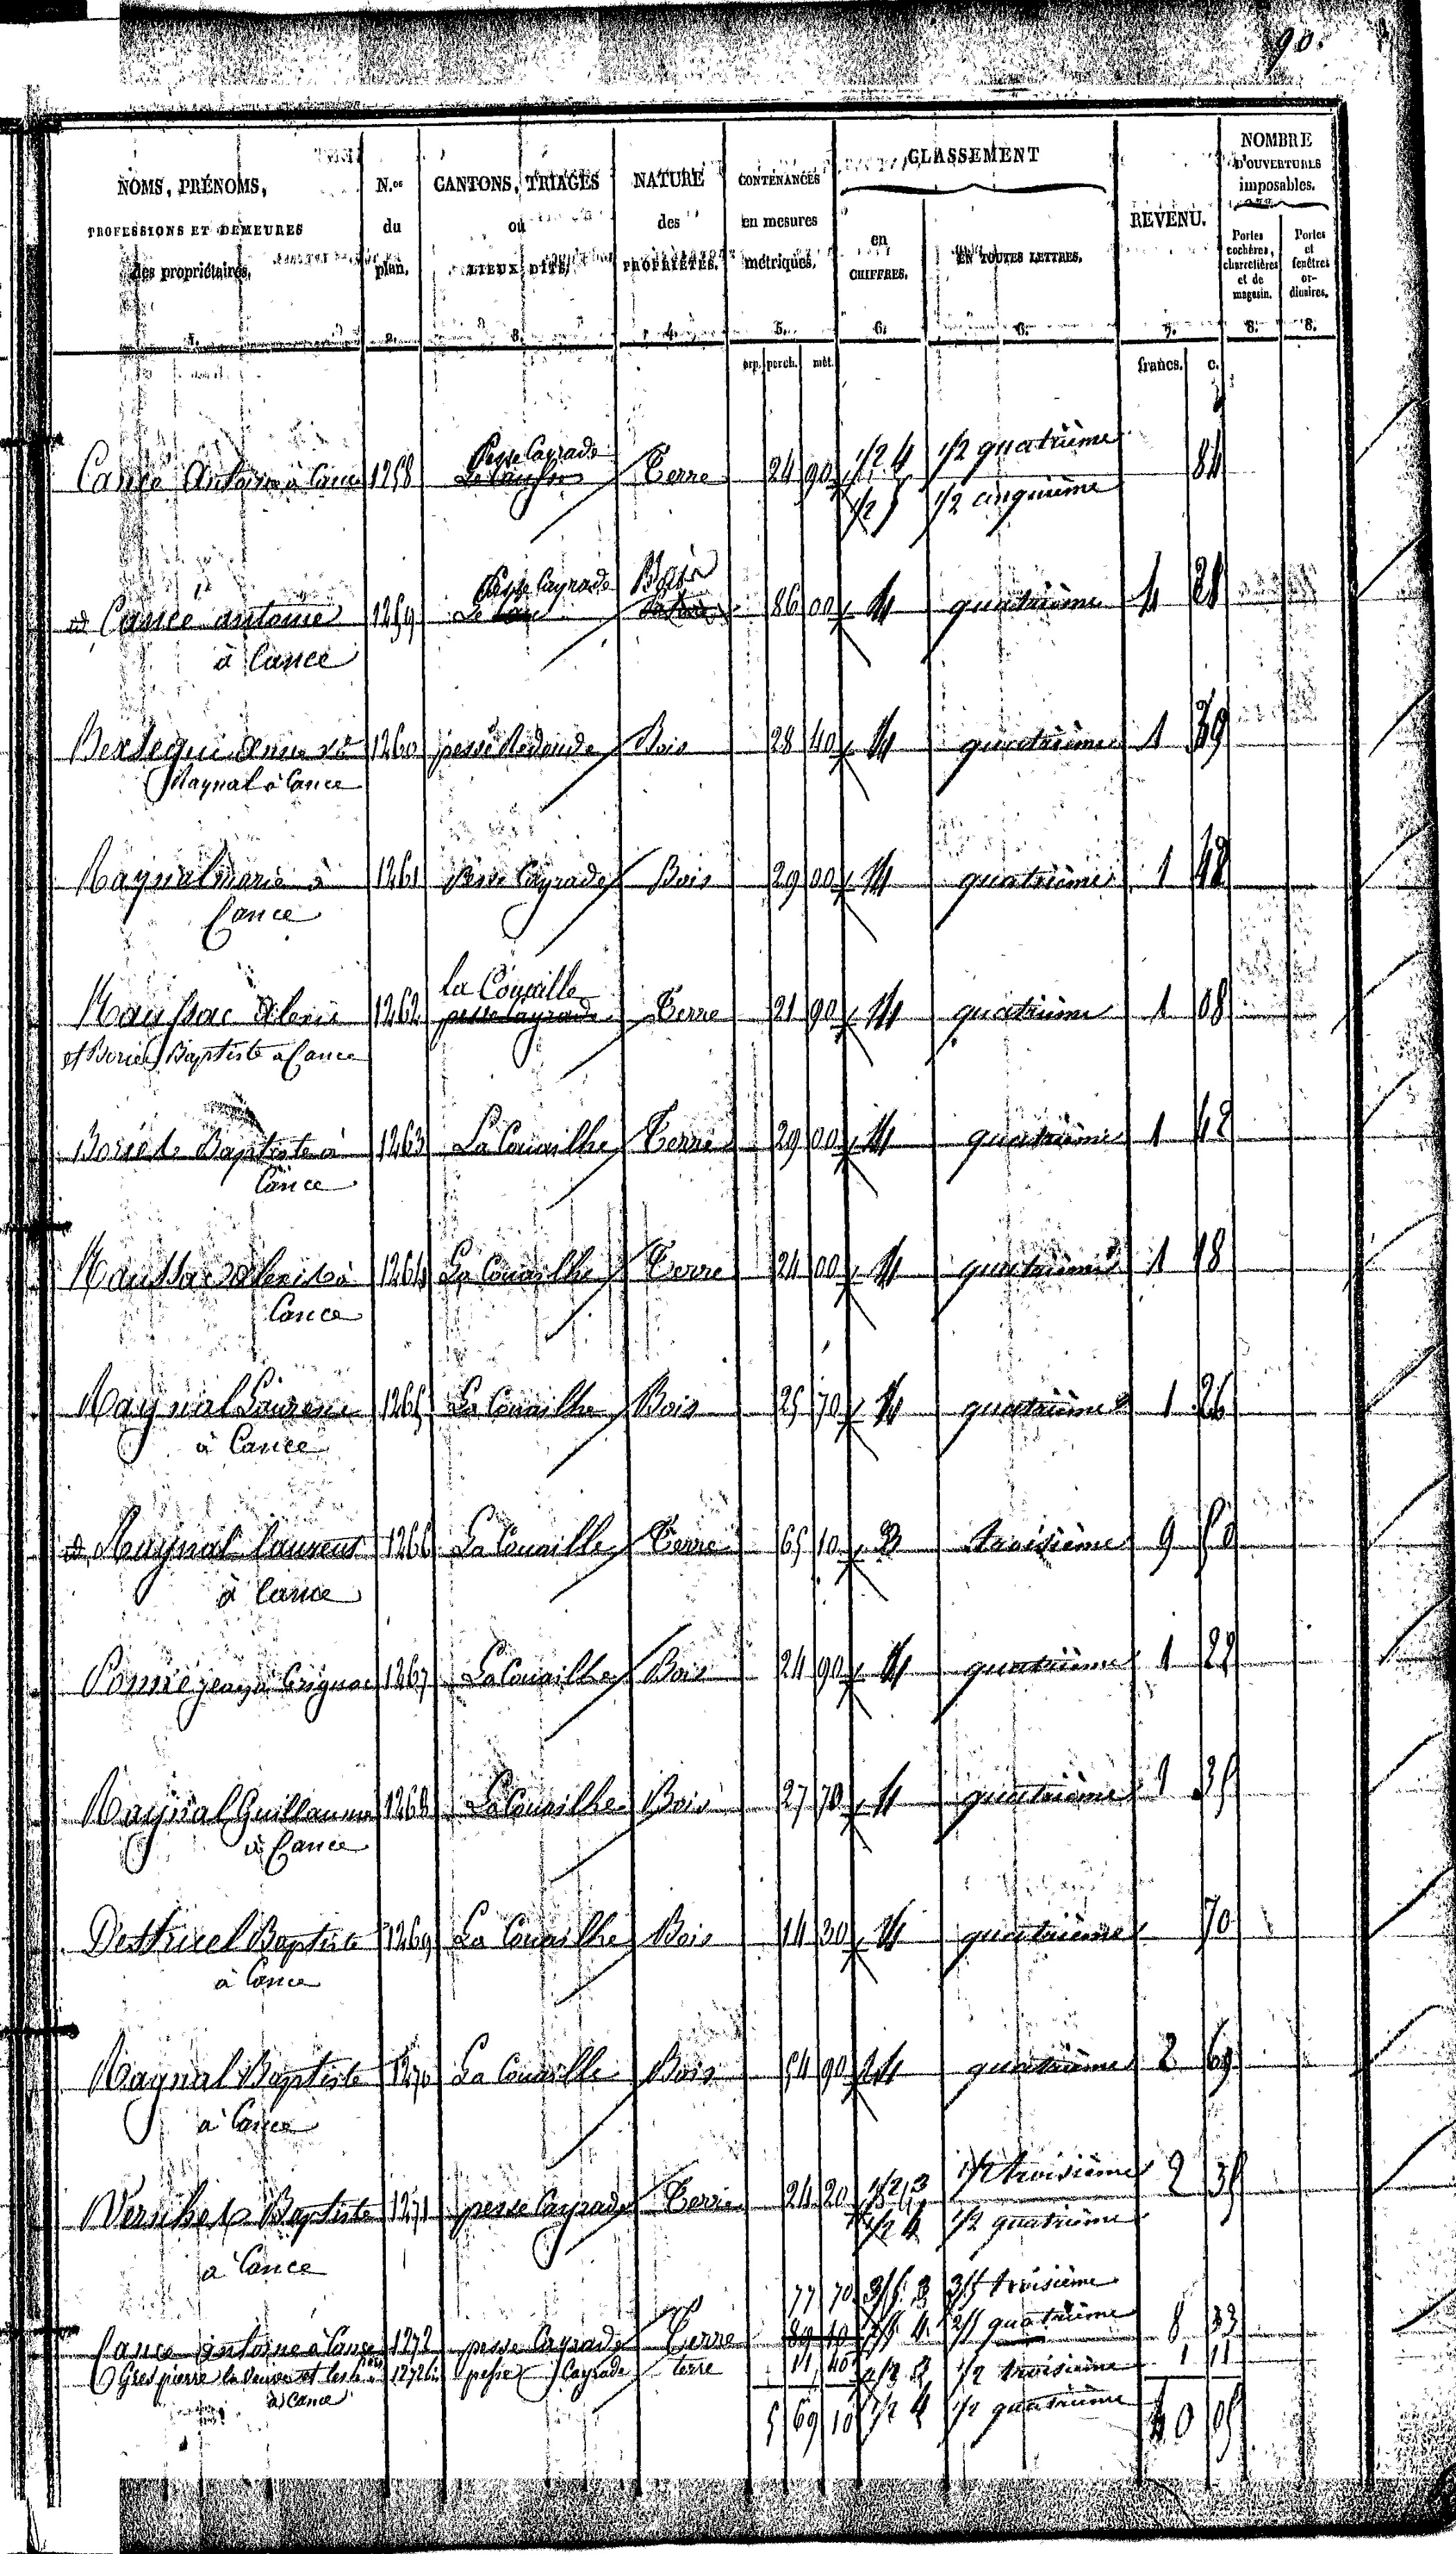 90.
NOMS, PRÉNOMS, PROFESSIONS ET DEMEURES des propriétaires. 1.
N.os du plan. 2.
CANTONS, TRIAGES ou LIEUX DITS. 3.
NATURE des PROPRIÉTÉS. 4.
CONTENANCES en mesures métriques. 5.
CLASSEMENT
en CHIFFRES. 6.
EN TOUTES LETTRES. 6.
REVENU. 7.
NOMBRE D'OUVERTURES imposables.
Portes cochères, charretières et de magasin. 8.
Portes et fenêtres ordinaires. 8.
arp. perch. mèt. francs. c.
Pesse Cayrade
Cancé Antoine à Cance 1258 Terre 24 90 1/2 4 1/2 quatrième 84
1/2 5 1/2 cinquième
Pesse Cayrade Bois
Cance antoine 1259 86 00 4 quatrième 4 21
à Cance
1260 pesse Redonde Bois 28 40 4 quatrième 1 39
Raynal à Cance
Raynal marie à 1261 Pesse Cayrade Bois 29 00 4 quatrième 1 42
Cance
la Couaille
Maussac Alexis 1262 pesse Cayrade Terre 21 90 4 quatrième 1 08
et Borie Baptiste a Cance
Borie Baptiste à 1263 La Couailhe Terre 29 00 4 quatrième 1 42
Cance
Maussac Alexis à 1264 La Couailhe Terre 24 00 4 quatrième 1 18
Cance
Raynal Laurent 1265 La Couailhe Bois 25 70 4 quatrième 1 26
à Cance
Raynal Laurent 1266 La Couaille Terre 65 10 3 troisième 9 50
à Cance
1267 La Couailhe Bois 24 90 4 quatrième 1 22
Raynal Guillaume 1268 La Couailhe Bois 27 70 4 quatrième 1 35
à Cance
Destruel Baptiste 1269 La Couailhe Bois 14 30 4 quatrième 70
à Cance
Raynal Baptiste 1270 La Couaille Bois 54 90 4 quatrième 2 69
a Cance
Baptiste 1271 pesse Cayrade Terre 24 20 1/2 3 1/2 troisième 2 35
1/2 4 1/2 quatrième
a Cance
77 70 3/5 3 3/5 troisième
Cance Antoine à Cance 1272 pesse Cayrade Terre 89 10 2/5 4 2/5 quatrième 8 33
Gres pierre la veuve et 1272 bis pesse Cayrade terre 11 40 1/2 3 1/2 troisième 1 11
à Cance
5 69 10 1/2 4 1/2 quatrième 40 05